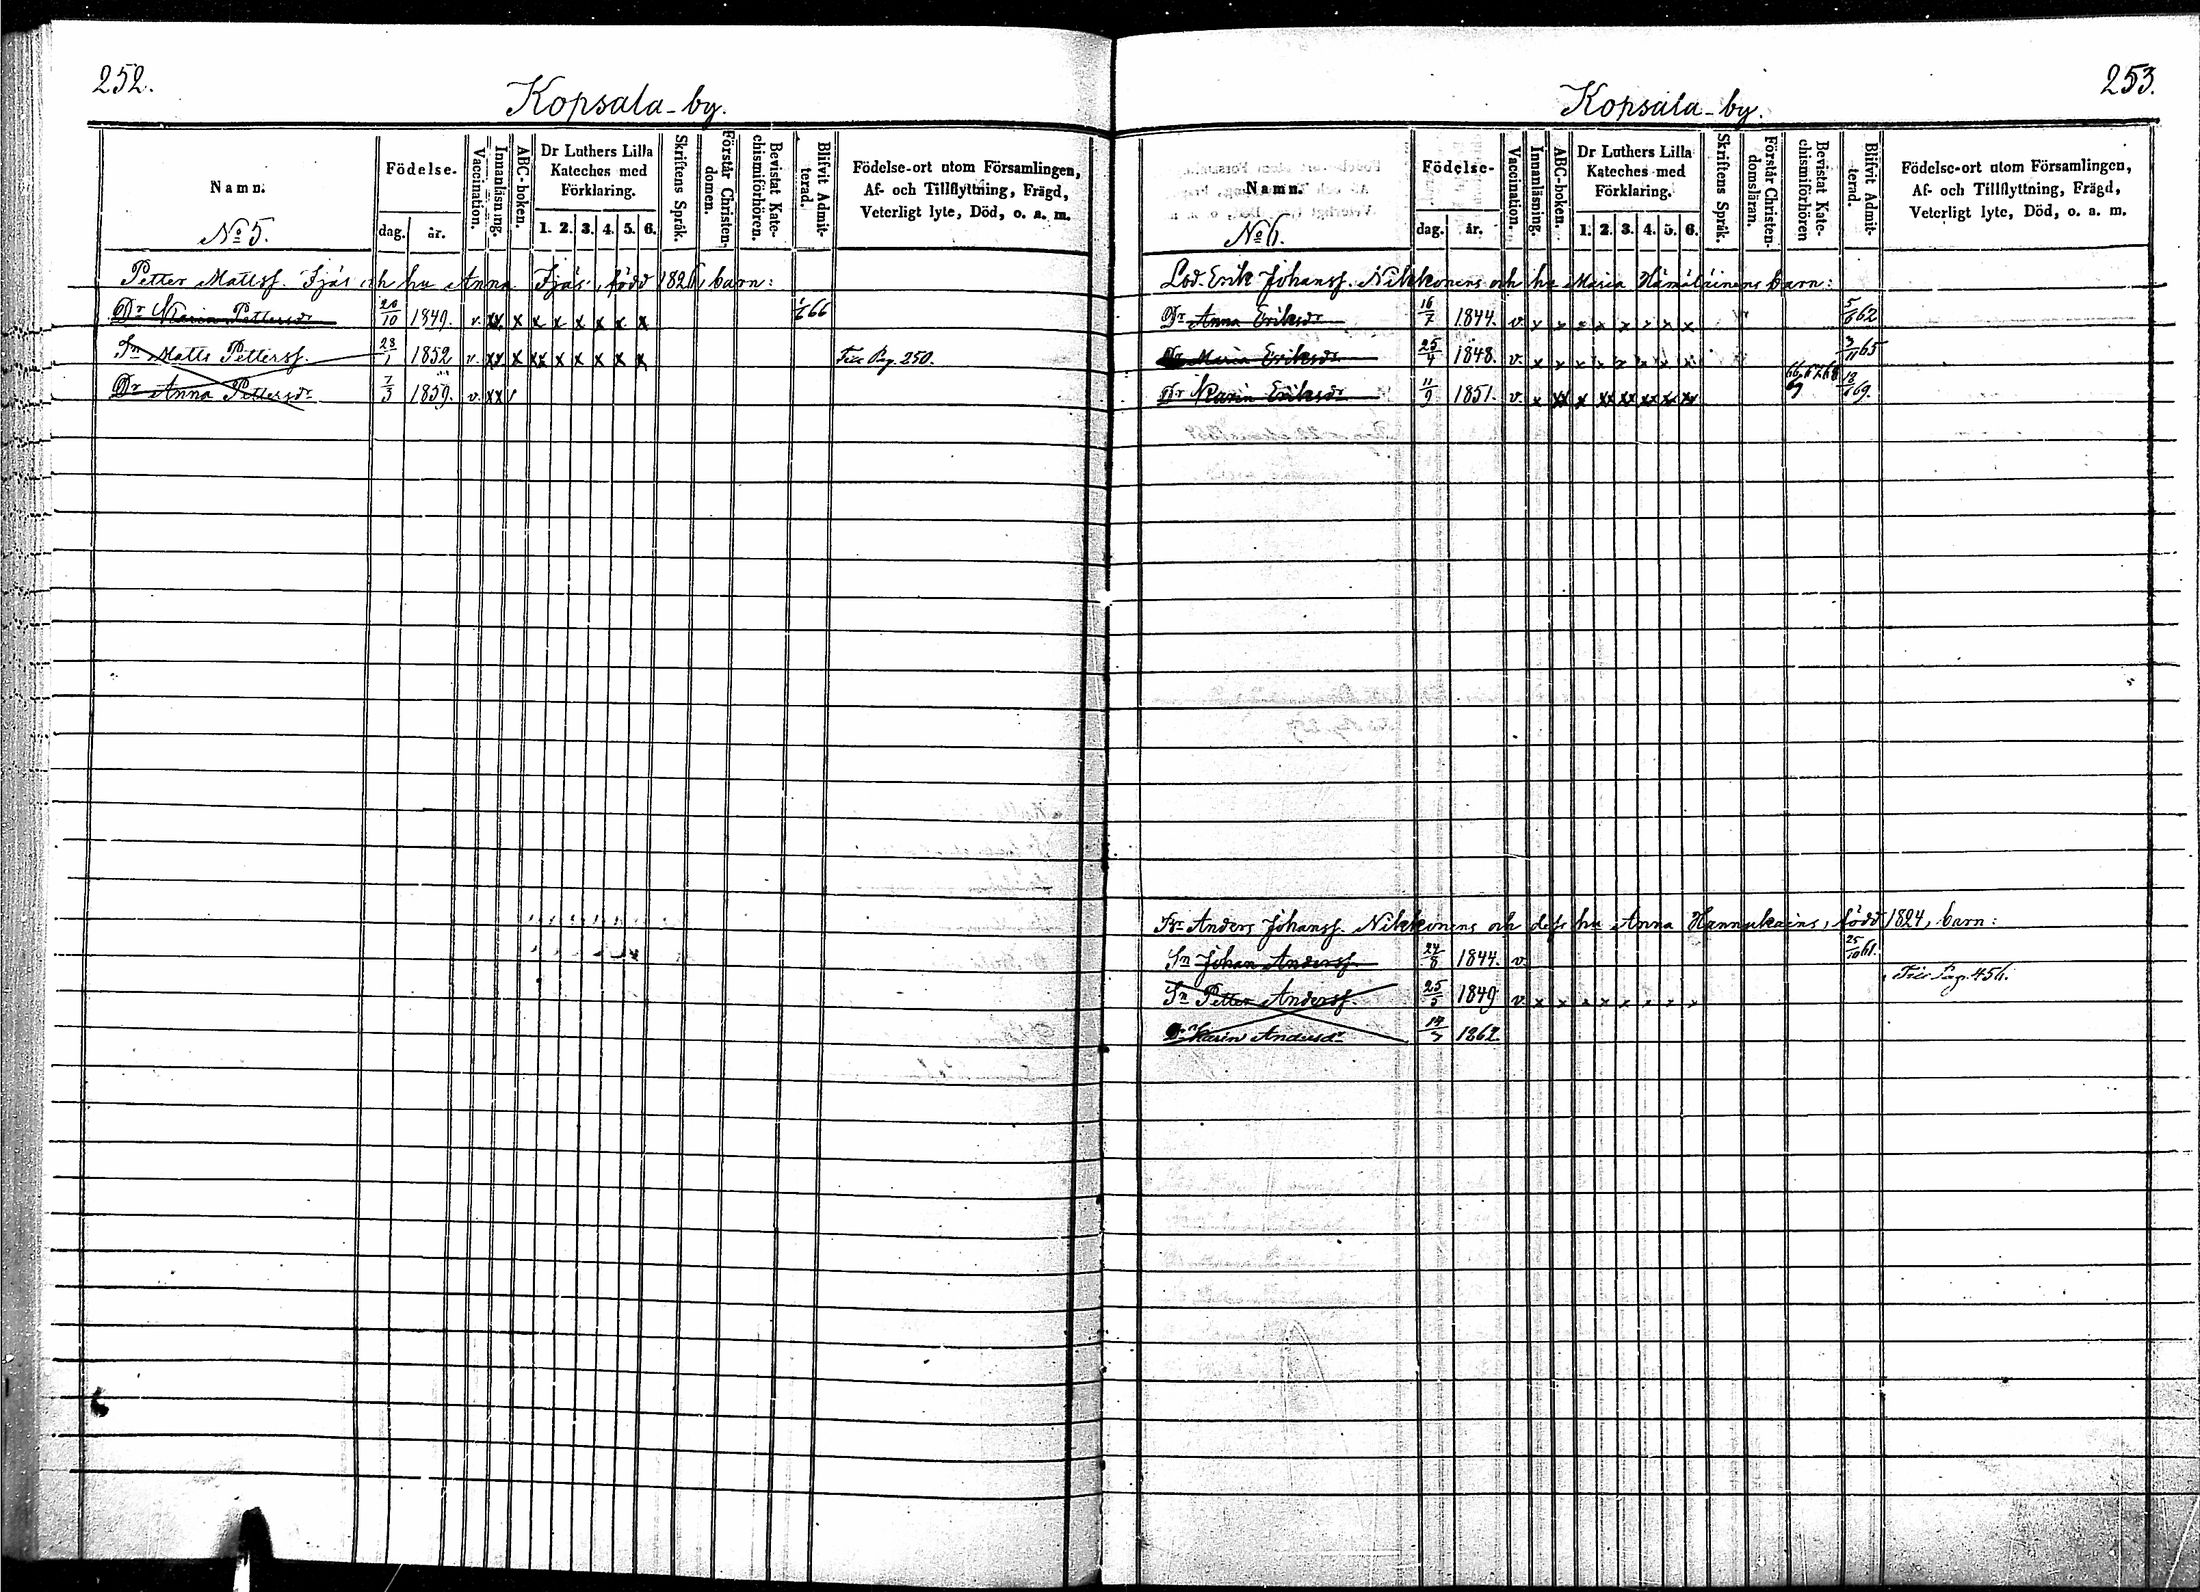 252.
Kopsala-by.
Namn.
No 5.
Födelse-
dag.
år.
Vaccination.
Innanläsning.
ABC-boken.
Dr Luthers Lilla
Kateches med
Förklaring.
1. 2. 3. 4. 5. 6.
Skriftens Språk.
Förstår Christen-
domen.
Bevistat Kate-
chismiförhören.
Blifvit Admit-
terad.
Födelse-ort utom Församlingen,
Af- och Tillflyttning, Frägd,
Veterligt lyte, Död, o. a. m.
Petter Mattsf. Fjäs och hu Anna Fjäs, född 1826, barn:
Dr Maria Pettersdr 20/10 1849. v. xx x x x x x x x 1/6 66
Sn Matts Pettersf. 23/1 1852 v. xx x xx x x x x x Fis Pag. 250.
Dr Anna Pettersdr 7/3 1859. v. xx
253.
Kopsala-by.
Namn.
No 6.
Födelse-
dag.
år.
Vaccination.
Innanläsning.
ABC-boken.
Dr Luthers Lilla
Kateches med
Förklaring.
1. 2. 3. 4. 5. 6.
Skriftens Språk.
Förstår Christen-
domsläran.
Bevistat Kate-
chismiförhören
Blifvit Admit-
terad.
Födelse-ort utom Församlingen,
Af- och Tillflyttning, Frägd,
Veterligt lyte, Död, o. a. m.
Lod. Erik Johansf. Nikkonens och hu Maria Hämäläinens barn:
Dr Anna Eriksdr 16/7 1844. v. x x x x x x x x 5/6 62
Dr Maria Eriksdr 25/4 1848. v. x x x x x x x x 3/11 65
Dr Karin Eriksdr 11/9 1851. v. x xx x xx xx xx xx xx 66, 67 68 69 13/6 69.
Fr Anders Johansf. Nikkonens och dess hu Anna Hannukains, född 1824, barn:
Sn Johan Andersf. 24/8 1844. v. 25/10 61.
Sn Petter Andersf. 25/5 1849 v. x x x x x x x x Pag. 456.
Dr Karin Andersdr 1862.